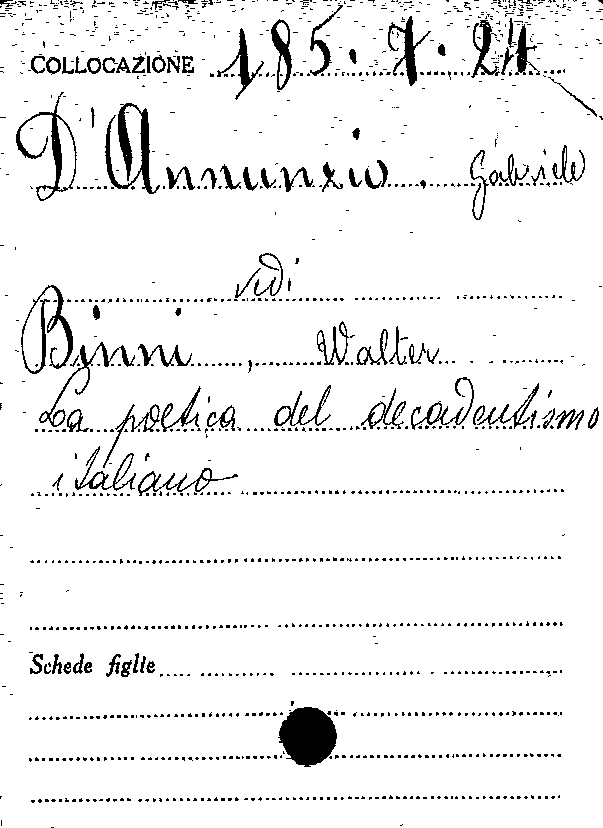 COLLOCAZIONE 185.7.24
D'Annunzio. Gabriele
vedi
Binni, Walter
La poetica del decadentismo
italiano
Schede figlie